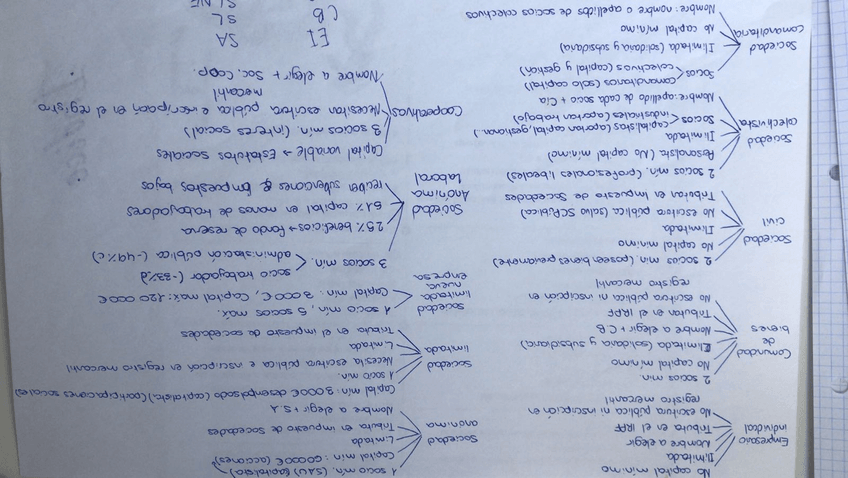 Empresario individual
No capital mínimo
Ilimitada
Nombre a elegir
Tributa en el IRPF
No escritura pública ni inscripción en
registro mercantil
Comunidad de bienes
2 socios min.
No capital mínimo
Ilimitada (solidaria y subsidiaria)
Nombre a elegir + C.B
Tributan en el IRPF
No escritura pública ni inscripción en
registro mercantil
Sociedad civil
2 socios min. (poseen bienes previamente)
No capital mínimo
Ilimitada
No escritura pública (salvo SCPública)
Tributan en Impuesto de Sociedades
Sociedad colectivista
2 socios min. (profesionales liberales)
Personalista (No capital mínimo)
Ilimitada
Socios < capitalistas (aportan capital, gestionan)
industriales (aportan trabajo)
Nombre: apellido de cada socio + Cía
Sociedad comanditaria
Socios < comanditarios (solo capital)
colectivos (capital y gestión)
Ilimitada (solidaria y subsidiaria)
No capital mínimo
Nombre: nombre o apellidos de socios colectivos
Sociedad anónima
1 socio min. (SAU) (capitalista)
Capital min: 60000€ (acciones)
Limitada
Tributa en impuesto de Sociedades
Nombre a elegir + S.A
Sociedad limitada
Capital min: 3000€ desembolsado (capitalista) (participaciones sociales)
1 socio min.
Necesita escritura pública e inscripción en registro mercantil
Limitada
Tributa en el impuesto de sociedades
Sociedad limitada nueva empresa
1 socio min, 5 socios máx
Capital min: 3000€, Capital máx: 120 000€
Sociedad Anónima Laboral
3 socios min. < socio trabajador (-33%)
administración pública (-49%)
25% beneficios → Fondo de reserva
51% capital en manos de trabajadores
reciben subvenciones impuestos bajos
Cooperativas
Capital variable → Estatutos sociales
3 socios min. (interés social)
Necesitan escritura pública e inscripción en el registro
mercantil
Nombre a elegir + Soc. Coop.
EI SA
CB SL
SLNE